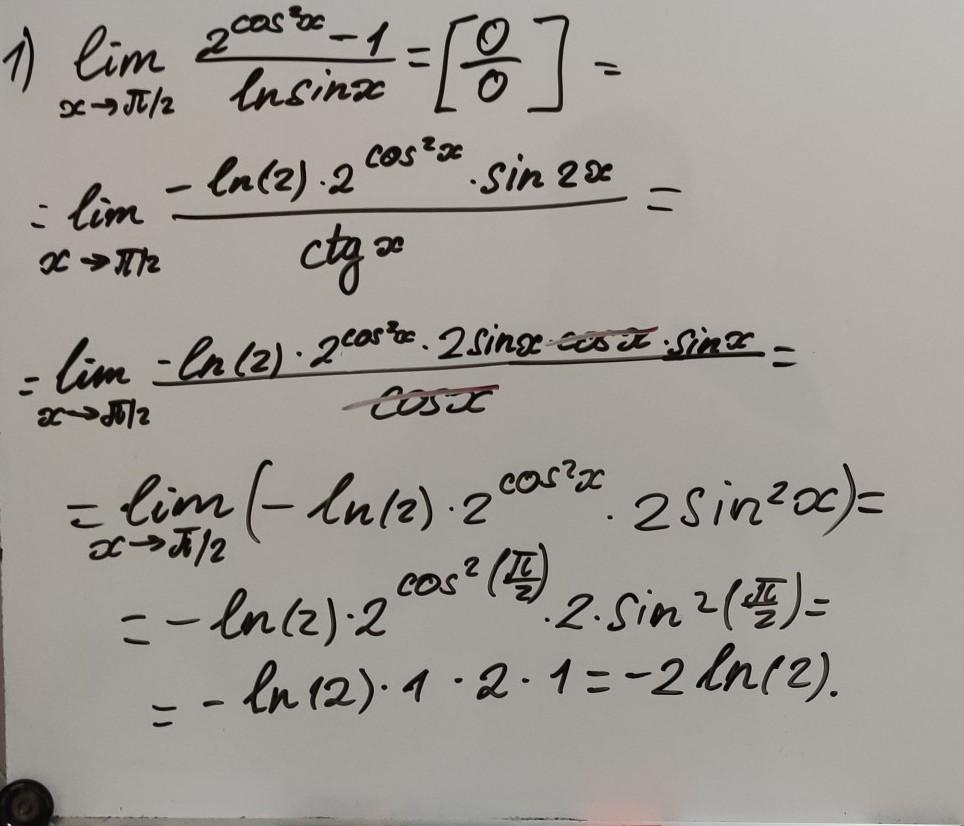 1) lim x→π/2 (2^(cos²x) - 1)/(ln sinx) = [0/0] =
= lim x→π/2 (- ln(2) · 2^(cos²x) · sin 2x)/(ctg x) =
= lim x→π/2 (-ln(2) · 2^(cos²x) · 2sinx · cosx · sinx)/(cosx) =
= lim x→π/2 (- ln(2) · 2^(cos²x) · 2 sin²x) =
= - ln(2) · 2^(cos²(π/2)) · 2 · sin²(π/2) =
= - ln(2) · 1 · 2 · 1 = -2 ln(2).